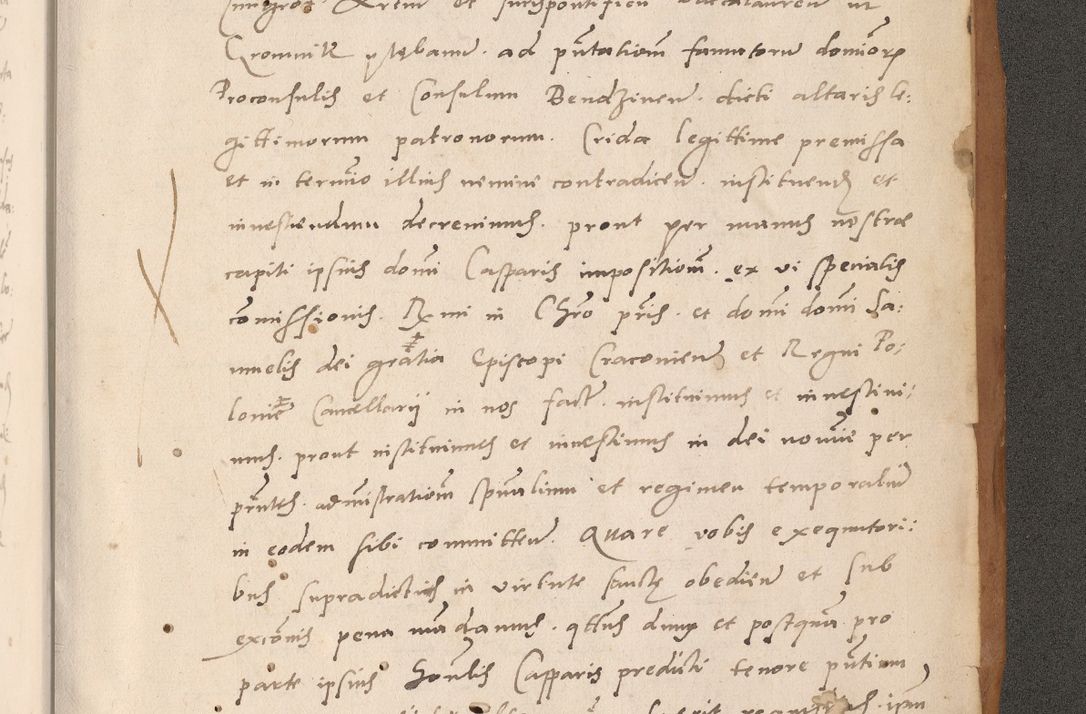 et Jurispontificii Baccalaureū ut
ad pn̄tationē famatorū dominorꝝ
Proconsulis et Consulum Bendzinen̄. dicti altaris le:
gittimorum patronorum. Crida legittime premissa
et in termīo illius nemine contradicen̄. instituend̄ et
investiendum decrevimus. prout per manus nostræ
capiti ipsius domī Casparis impositionē. ex vi specialis
com̄issionis. Rx̄mi in Chr̄o pr̄is. et domī domī Sa:
muelis dei gratia Episcopi Cracovien̄ et Regni Po:
loniæ Cancellarij in nos fact̄. instituimus et investivi:
mus. prout instituimus et investimus in dei nomīe per
pn̄tes. adm̄istrationē spūalium et regimen temporaliū
in eodem sibi committen̄. Quare vobis exequutori:
bus supradictis in virtute sanctę obedien̄ et sub
excōnis pena mādamus. qtt̄us dum et postquā pro
parte ipsius Hon̄lis Casparis predicti tenore pn̄tium